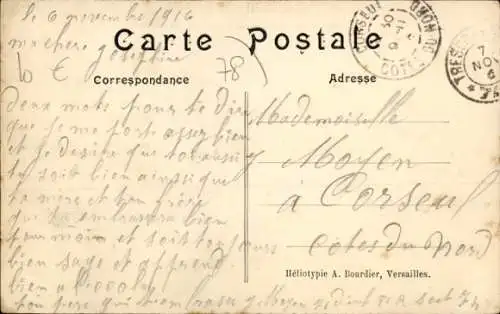 le 6 novembre 1916
ma chere Josephine
10 €
78
Carte Postale
Correspondance
Adresse
deux mots pour te dire
que je me porte assez bien
et je desire que toi aussi
tu soit bien ainsi que
ta mere et ton frere
que tu embrassera bien
pour moi et soit toujours
bien sage et apprend
bien a l'ecole
ton pere qui t'embrasse Moyen
Mademoiselle
Moyen
à Corseul
Côtes du Nord
CORSEUL
TRESOR
7
NOV
Héliotypie A. Bourdier, Versailles.